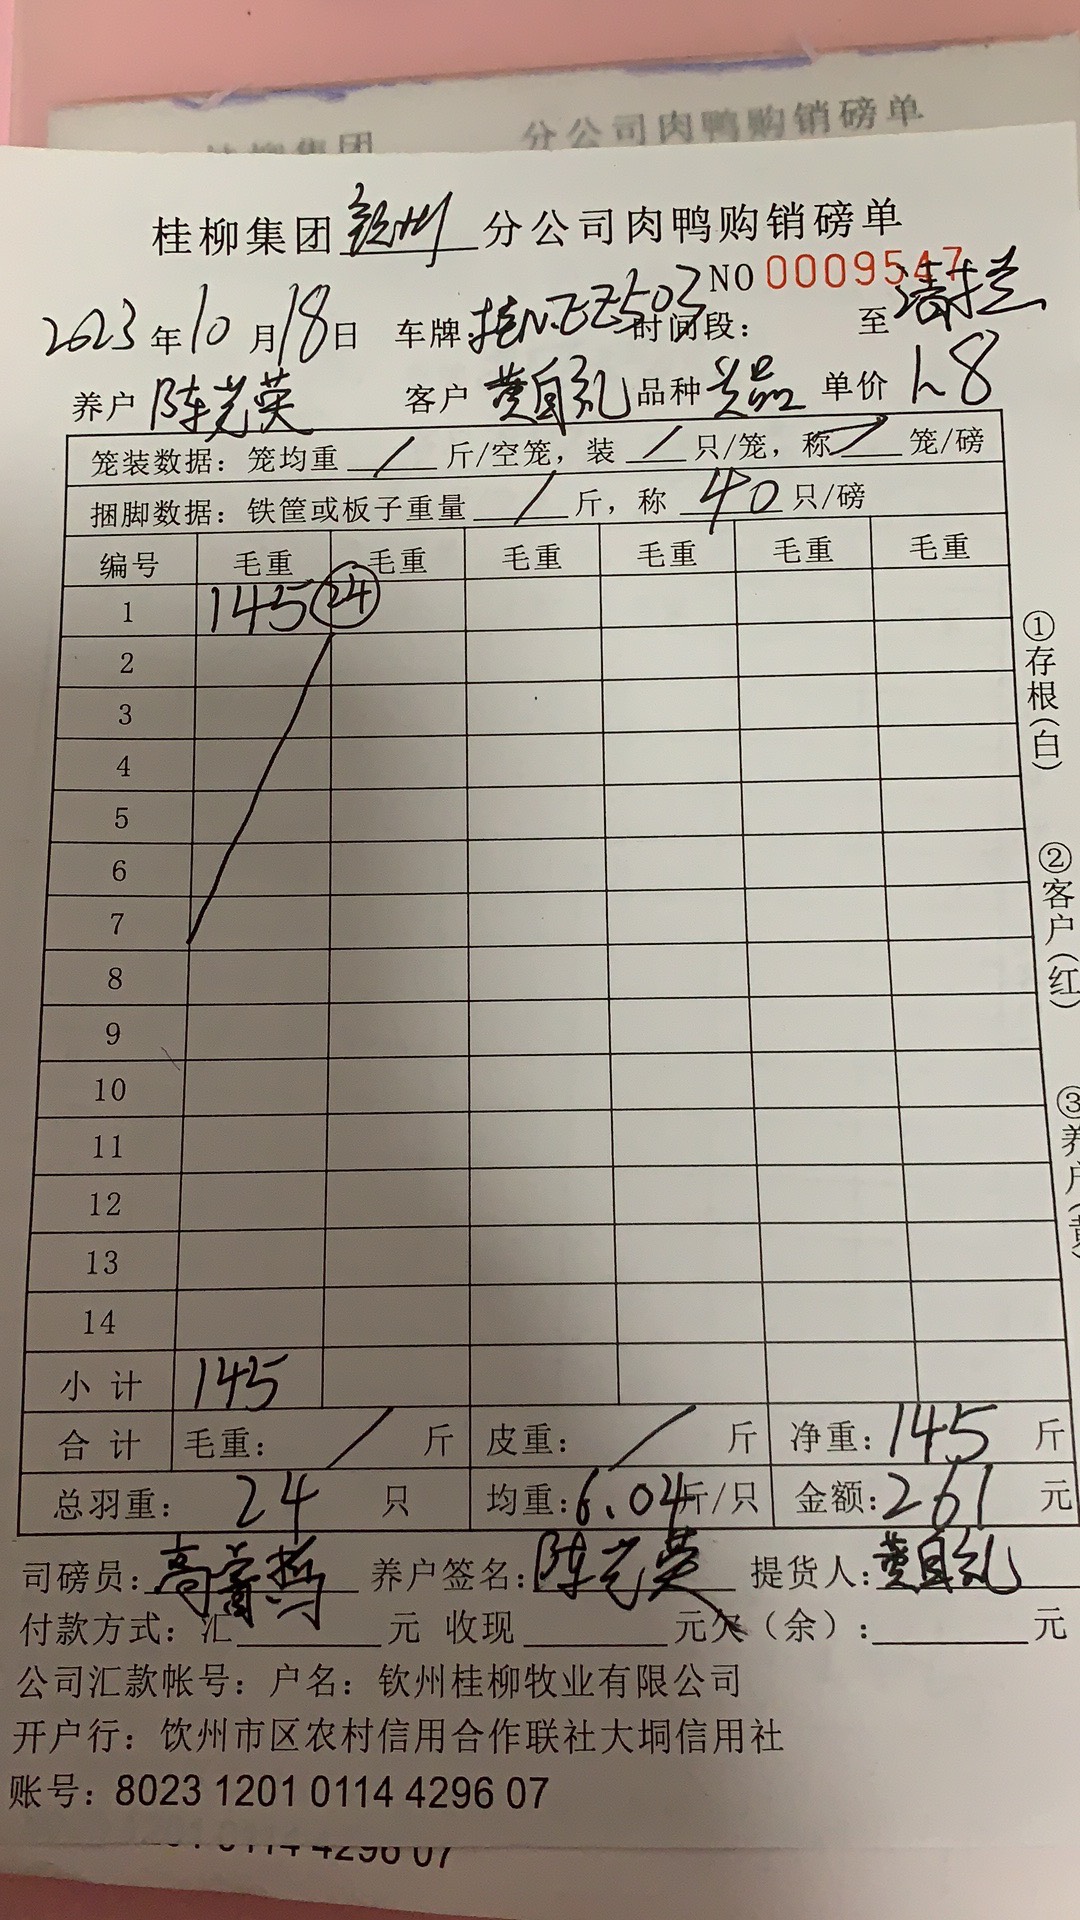 分公司肉鸭购销磅单
桂柳集团 钦州 分公司肉鸭购销磅单
NO 0009547
2023年10月18日 车牌: 桂N.ZZ503 时间段: 至 清栏
养户 陈 英 客户 黄自礼 品种 单价 1.8
笼装数据: 笼均重 / 斤/空笼, 装 / 只/笼, 称 / 笼/磅
捆脚数据: 铁筐或板子重量 / 斤, 称 40 只/磅
编号 毛重 毛重 毛重 毛重 毛重 毛重
1 145 24
2
3
4
5
6
7
8
9
10
11
12
13
14
小计 145
合计 毛重: / 斤 皮重: / 斤 净重: 145 斤
总羽重: 24 只 均重: 6.04 斤/只 金额: 261 元
司磅员: 高 养户签名: 陈 英 提货人: 黄自礼
付款方式: 汇 元 收现 元 欠(余): 元
公司汇款帐号: 户名: 钦州桂柳牧业有限公司
开户行: 饮州市区农村信用合作联社大垌信用社
账号: 8023 1201 0114 4296 07
①存根(白)
②客户(红)
③养户(黄)
0114 4296 07